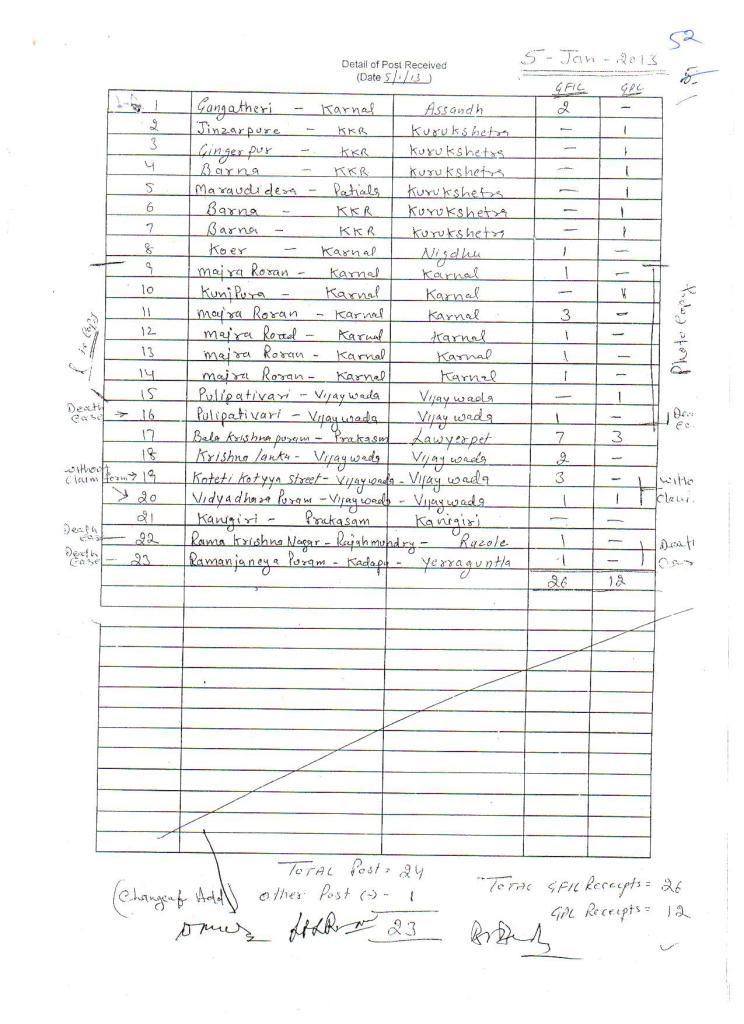 52
5 - Jan - 2013
Detail of Post Received
(Date 5/1/13)
GFIL GPL
1 Gangatheri - Karnal Assandh 2 -
2 Jinzarpure - KKR Kurukshetra - 1
3 Gingerpur - KKR Kurukshetra - 1
4 Barna - KKR Kurukshetra - 1
5 Maraudidera - Patiala Kurukshetra - 1
6 Barna - KKR Kurukshetra - 1
7 Barna - KKR Kurukshetra - 1
8 Koer - Karnal Nigdhu 1 -
9 majra Roran - Karnal Karnal 1 -
10 KunjPura - Karnal Karnal - 1
11 majra Roran - Karnal Karnal 3 -
12 majra Road - Karnal Karnal 1 -
13 majra Roran - Karnal Karnal 1 -
14 majra Roran - Karnal Karnal 1 -
Photo Copy
15 Pulipativari - Vijaywada Vijaywada - 1
Death Case → 16 Pulipativari - Vijaywada Vijaywada 1 -
17 Bala Krishnapuram - Prakasm Lawyerpet 7 3
18 Krishna lanka - Vijaywada Vijaywada 2 -
without Claim form → 19 Koteti Kotyya Street - Vijaywada - Vijaywada 3 -
20 Vidyadhara Puram - Vijaywada - Vijaywada 1 1
21 Kanigiri - Prakasam Kanigiri - -
Death Case - 22 Rama Krishna Nagar - Rajahmundry - Razole 1 -
Death Case - 23 Ramanjaneya Puram - Kadapa - Yerraguntla 1 -
26 12
Total Post = 24
(Change of Add) Other Post (-) - 1
23
Total GFIL Receipts = 26
GPL Receipts = 12